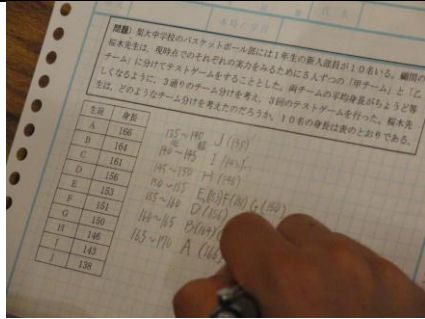 氏名
本時の学習
問題) 梨大中学校のバスケットボール部には1年生の新入部員が10名いる。顧問の
桜木先生は、現時点でのそれぞれの実力をみるために5人ずつの「甲チーム」と「乙
チーム」に分けてテストゲームをすることとした。両チームの平均身長がちょうど等
しくなるように、3通りのチーム分けを考え、3回のテストゲームを行った。桜木先
生は、どのようなチーム分けを考えたのだろうか。10名の身長は表のとおりである。
生徒 身長
A 166
B 164
C 161
D 156
E 153
F 151
G 150
H 146
I 143
J 138
135~140 J(138)
140~145 I(143)
145~150 H(146)
150~155 E(153)F(151)G(150)
155~160 D(156)
160~165 B(164)
165~170 A(166